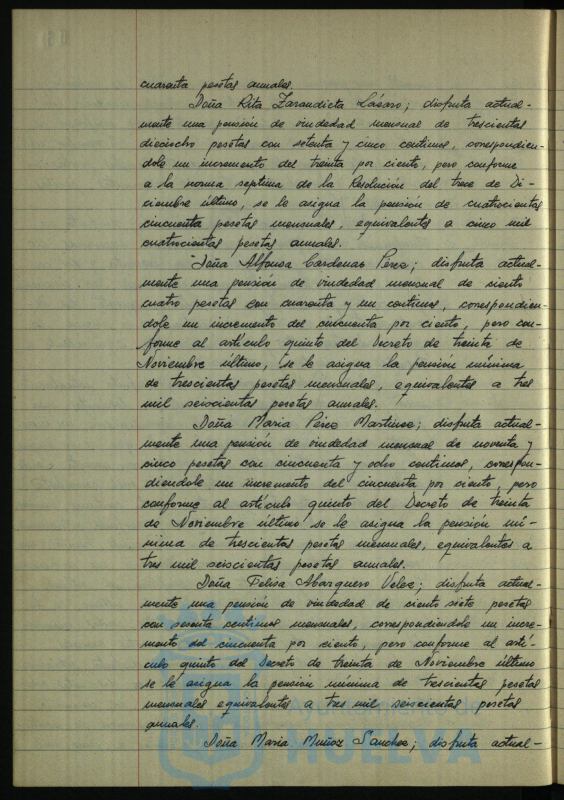 cuarenta pesetas anuales.
Doña Rita Zarandieta Lázaro; disfruta actual-
mente una pensión de viudedad mensual de trescientas
dieciocho pesetas con setenta y cinco centimos, correspondien-
dole un incremento del treinta por ciento, pero conforme
a la norma septima de la Resolución del trece de Di-
ciembre último, se le asigna la pensión de cuatrocientas
cincuenta pesetas mensuales, equivalentes a cinco mil
cuatrocientas pesetas anuales.
Doña Alfonsa Cardenas Perez; disfruta actual-
mente una pensión de viudedad mensual de ciento
cuatro pesetas con cuarenta y un centimos, correspondien-
dole un incremento del cincuenta por ciento, pero con-
forme al artículo quinto del Decreto de treinta de
Noviembre último, se le asigna la pensión mínima
de trescientas pesetas mensuales, equivalentes a tres
mil seiscientas pesetas anuales.
Doña Maria Pérez Martinez; disfruta actual-
mente una pensión de viudedad mensual de noventa y
cinco pesetas con cincuenta y ocho centimos, correspon-
diendole un incremento del cincuenta por ciento, pero
conforme al artículo quinto del Decreto de treinta
de Noviembre último se le asigna la pensión mí-
nima de trescientas pesetas mensuales, equivalentes a
tres mil seiscientas pesetas anuales.
Doña Felisa Abarquero Velez; disfruta actual-
mente una pensión de viudedad de ciento siete pesetas
con sesenta centimos mensuales, correspondiendole un incre-
mento del cincuenta por ciento, pero conforme al artí-
culo quinto del Decreto de treinta de Noviembre último
se le asigna la pensión mínima de trescientas pesetas
mensuales equivalentes a tres mil seiscientas pesetas
anuales.
Doña Maria Muñoz Sanchez; disfruta actual-
Ayuntamiento de
HUELVA